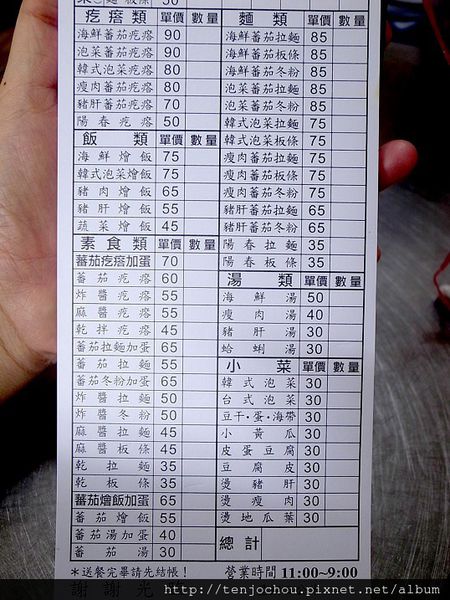 板條 50
疙瘩類 單價 數量
海鮮蕃茄疙瘩 90
泡菜蕃茄疙瘩 90
韓式泡菜疙瘩 80
瘦肉蕃茄疙瘩 80
豬肝蕃茄疙瘩 70
陽春疙瘩 50
飯類 單價 數量
海鮮燴飯 75
韓式泡菜燴飯 75
豬肉燴飯 65
豬肝燴飯 55
蔬菜燴飯 45
素食類 單價 數量
蕃茄疙瘩加蛋 70
蕃茄疙瘩 60
炸醬疙瘩 55
麻醬疙瘩 55
乾拌疙瘩 45
蕃茄拉麵加蛋 65
蕃茄拉麵 55
蕃茄冬粉加蛋 65
炸醬拉麵 50
炸醬冬粉 50
麻醬拉麵 45
麻醬板條 45
乾拉麵 35
乾板條 35
蕃茄燴飯加蛋 65
蕃茄燴飯 55
蕃茄湯加蛋 40
蕃茄湯 30
麵類 單價 數量
海鮮蕃茄拉麵 85
海鮮蕃茄板條 85
海鮮蕃茄冬粉 85
泡菜蕃茄拉麵 85
泡菜蕃茄冬粉 85
韓式泡菜拉麵 75
韓式泡菜板條 75
瘦肉蕃茄拉麵 75
瘦肉蕃茄板條 75
瘦肉蕃茄冬粉 75
豬肝蕃茄拉麵 65
豬肝蕃茄冬粉 65
陽春拉麵 35
陽春板條 35
湯類 單價 數量
海鮮湯 50
瘦肉湯 40
豬肝湯 30
蛤蜊湯 30
小菜 單價 數量
韓式泡菜 30
台式泡菜 30
豆干·蛋·海帶 30
小黃瓜 30
皮蛋豆腐 30
豆腐皮 30
燙豬肝 30
燙瘦肉 30
燙地瓜葉 30
總計
*送餐完畢請先結帳！ 營業時間 11:00~9:00
謝謝光
http://tenjochou.pixnet.net/album